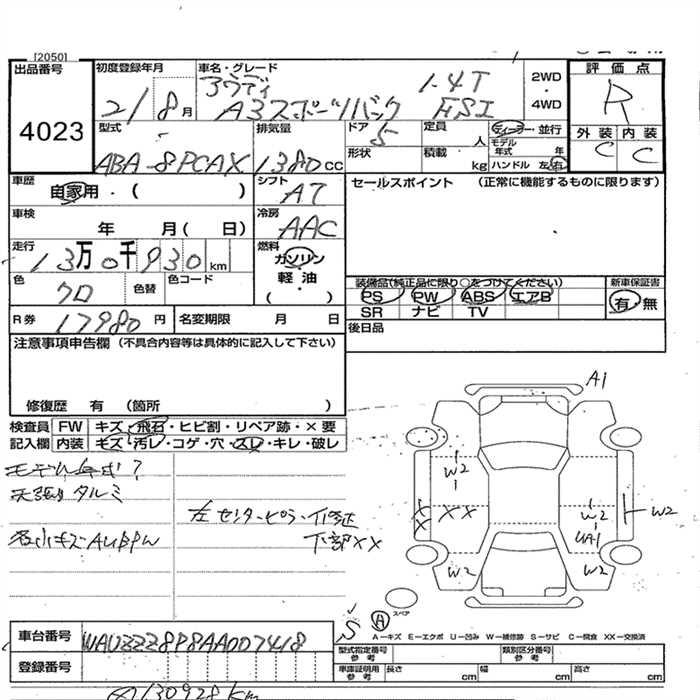 [2050]
出品番号
4023
初度登録年月
21/8月
車名・グレード
アウディ 1.4T
A3スポーツバック FSI
2WD
・
4WD
評価点
R
外装 内装
C C
型式
ABA-8PCAX
排気量
1380cc
ドア
5
形状
定員
人
積載
kg
ディーラー・並行
モデル
年式 年
ハンドル 左・右
車歴
自家用・( )
シフト
AT
セールスポイント (正常に機能するものに限ります)
車検
年 月( 日)
冷房
AAC
走行
13万0千930km
燃料
ガソリン
軽油
( )
色
クロ
色替
色コード
装備品(純正品に限り○をつけてください)
PS PW ABS エアB
SR ナビ TV
新車保証書
有・無
R券 17980円
名変期限 月 日
後日品
注意事項申告欄 (不具合内容等は具体的に記入して下さい)
修復歴 有 (箇所 )
検査員
記入欄
FW キズ・飛石・ヒビ割・リペア跡・×要
内装 キズ・汚レ・コゲ・穴・スレ・キレ・破レ
モデル年式?
天張りタルミ
各小キズAUBPW
左センターピラー修正
下部××
A1
W2
××
W2
W2
UA1
W2
W2
スペア
A
S
A−キズ E−エクボ U−凹み W−補修跡 S−サビ C−腐食 XX−交換済
車台番号
WAUZZZ8P8AA007418
登録番号
型式指定番号
参考
類別区分番号
参考
車庫証明用
参考
長さ cm
幅 cm
高さ cm
130928km